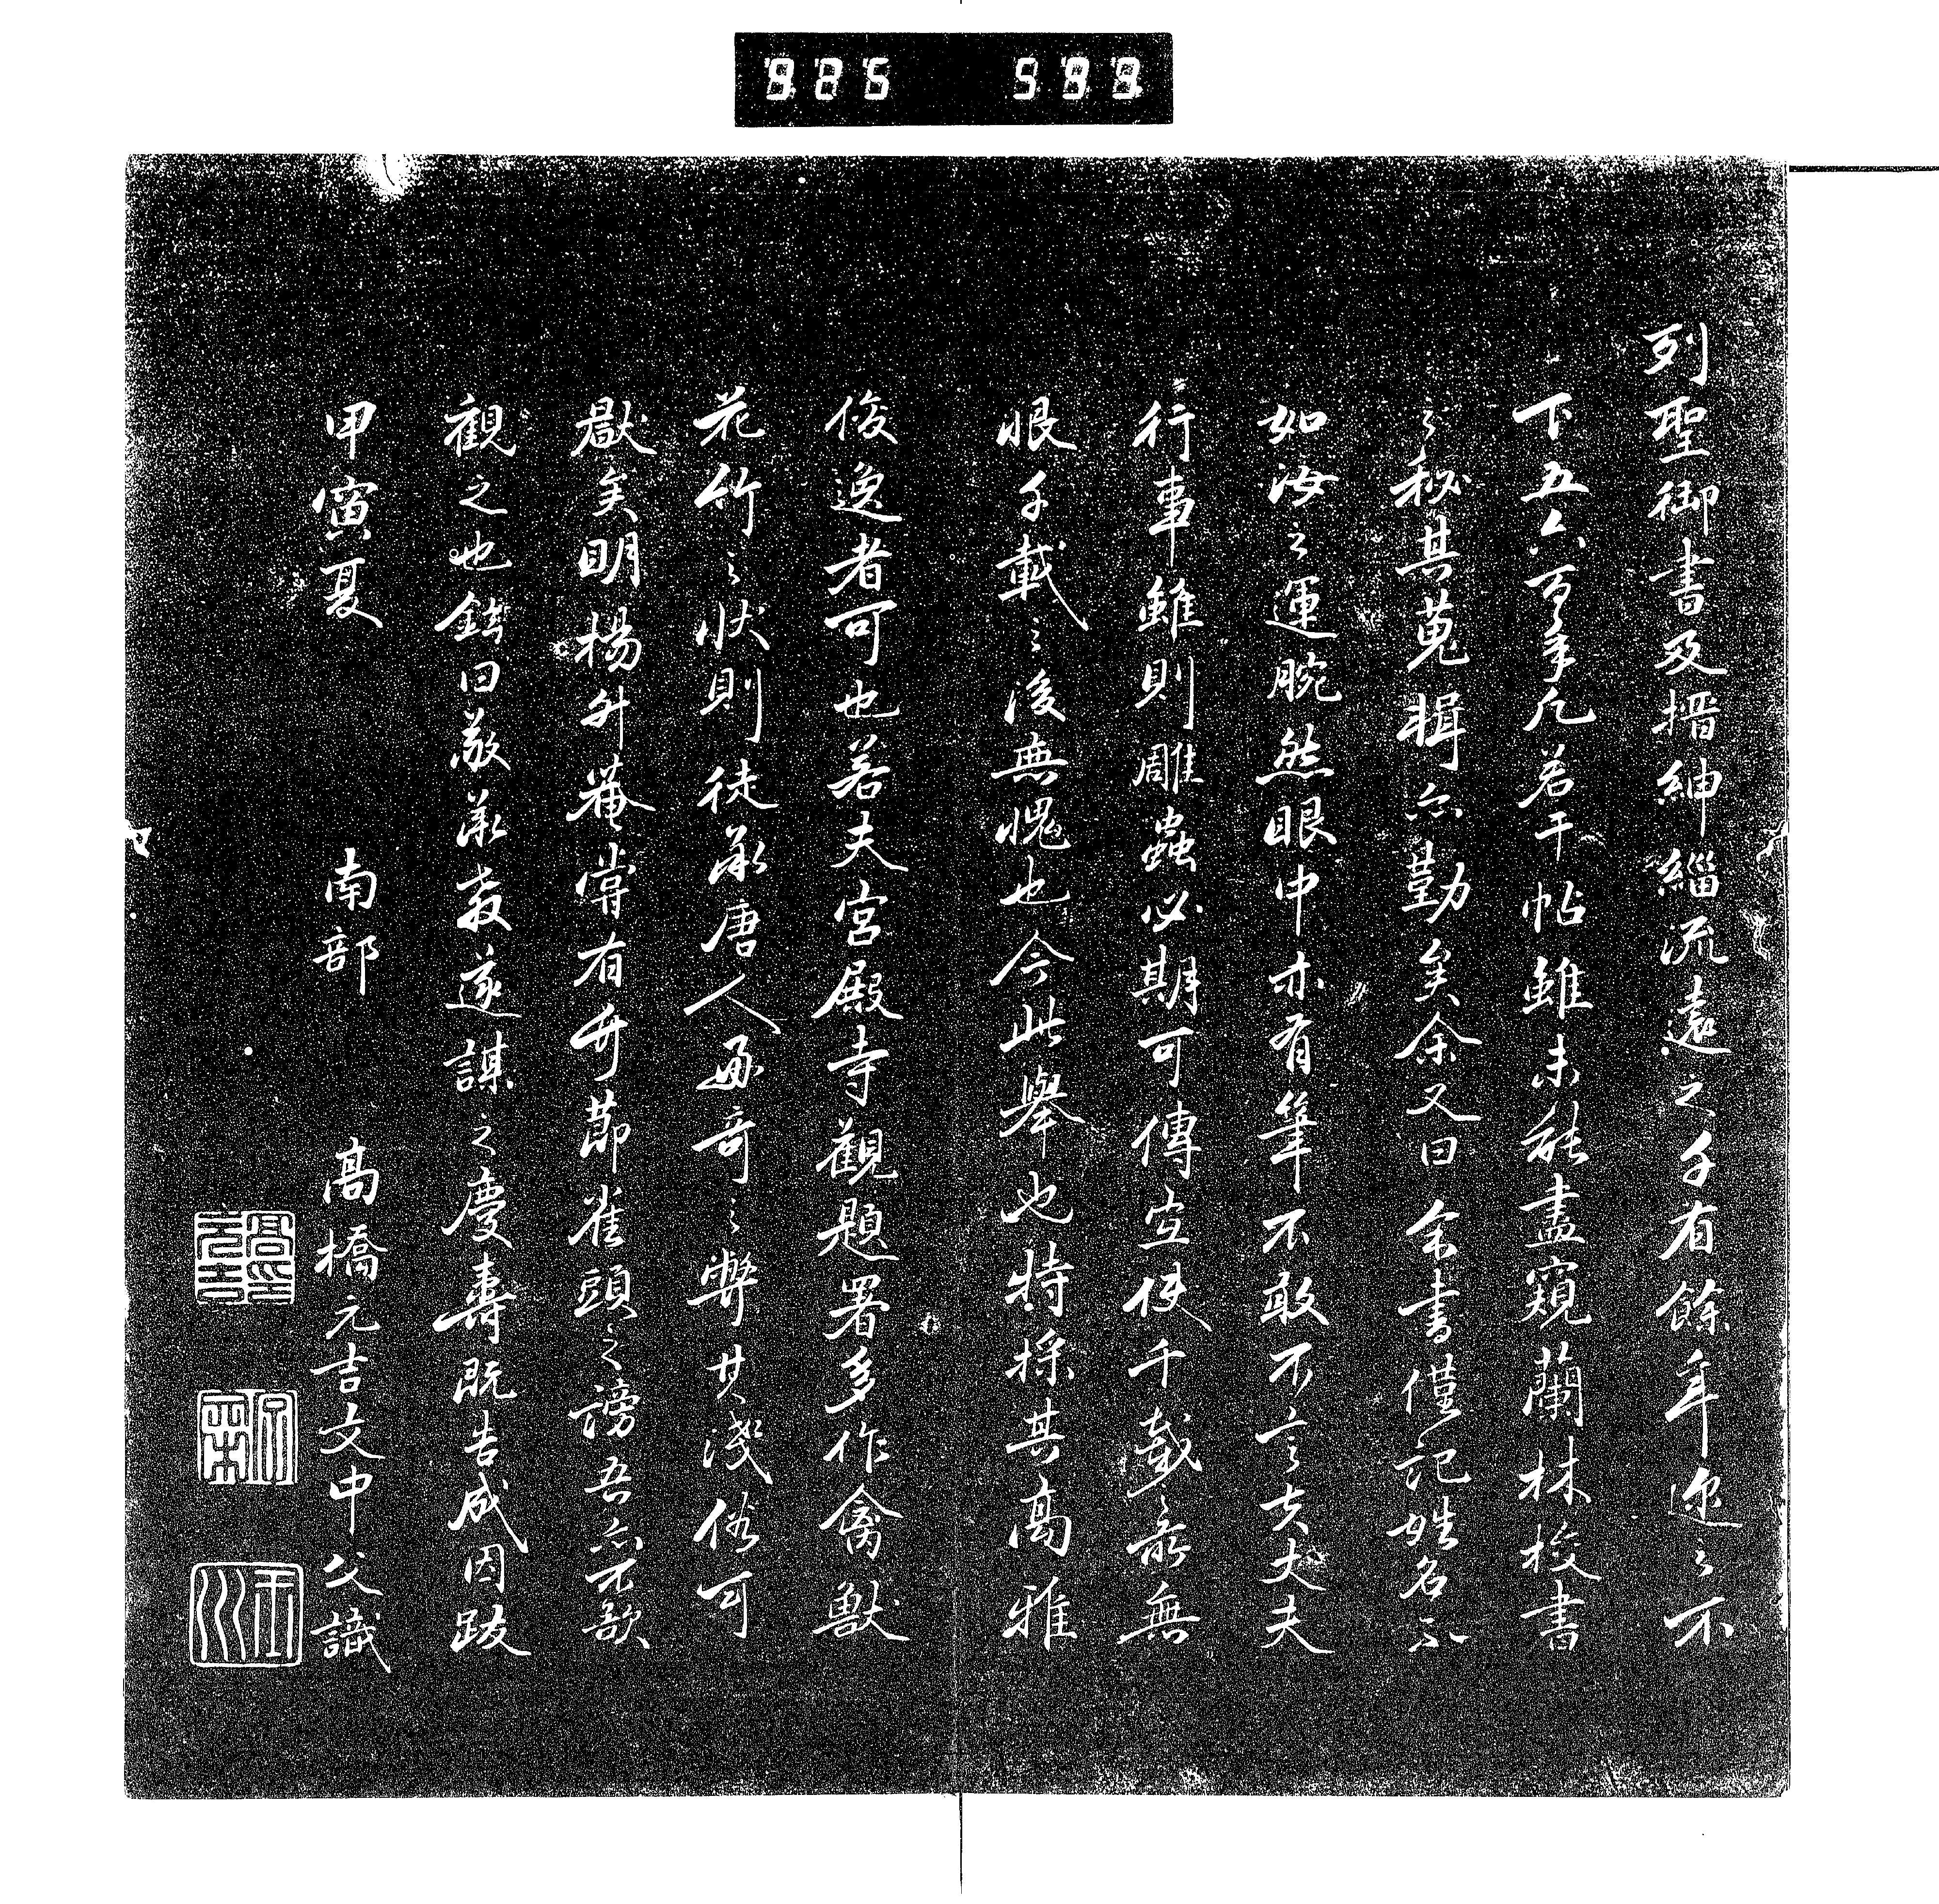 925 599
列聖御書及搢紳緇流遠之千有餘年迩之不
下五六百年凡若干帖雖未能盡窺蘭林校書
之秘其蒐輯亦勤矣余又曰余書僅記姓名不
如海之運腕然眼中亦有筆不敢不言夫大夫
行事雖則雕蟲必期可傳宜使千載之前無
恨千載之後無愧也今此舉也特採其高雅
俊逸者可也若夫宮殿寺觀題署多作禽獸
花竹之狀則徒承唐人好奇之弊其淺俗可
厭矣明楊升菴嘗有竹節雀頭之謗吾亦不欲
觀之也鐫曰敬承教遂謀之慶壽既告成因跋
甲寅夏 南部 高橋元吉文中父識